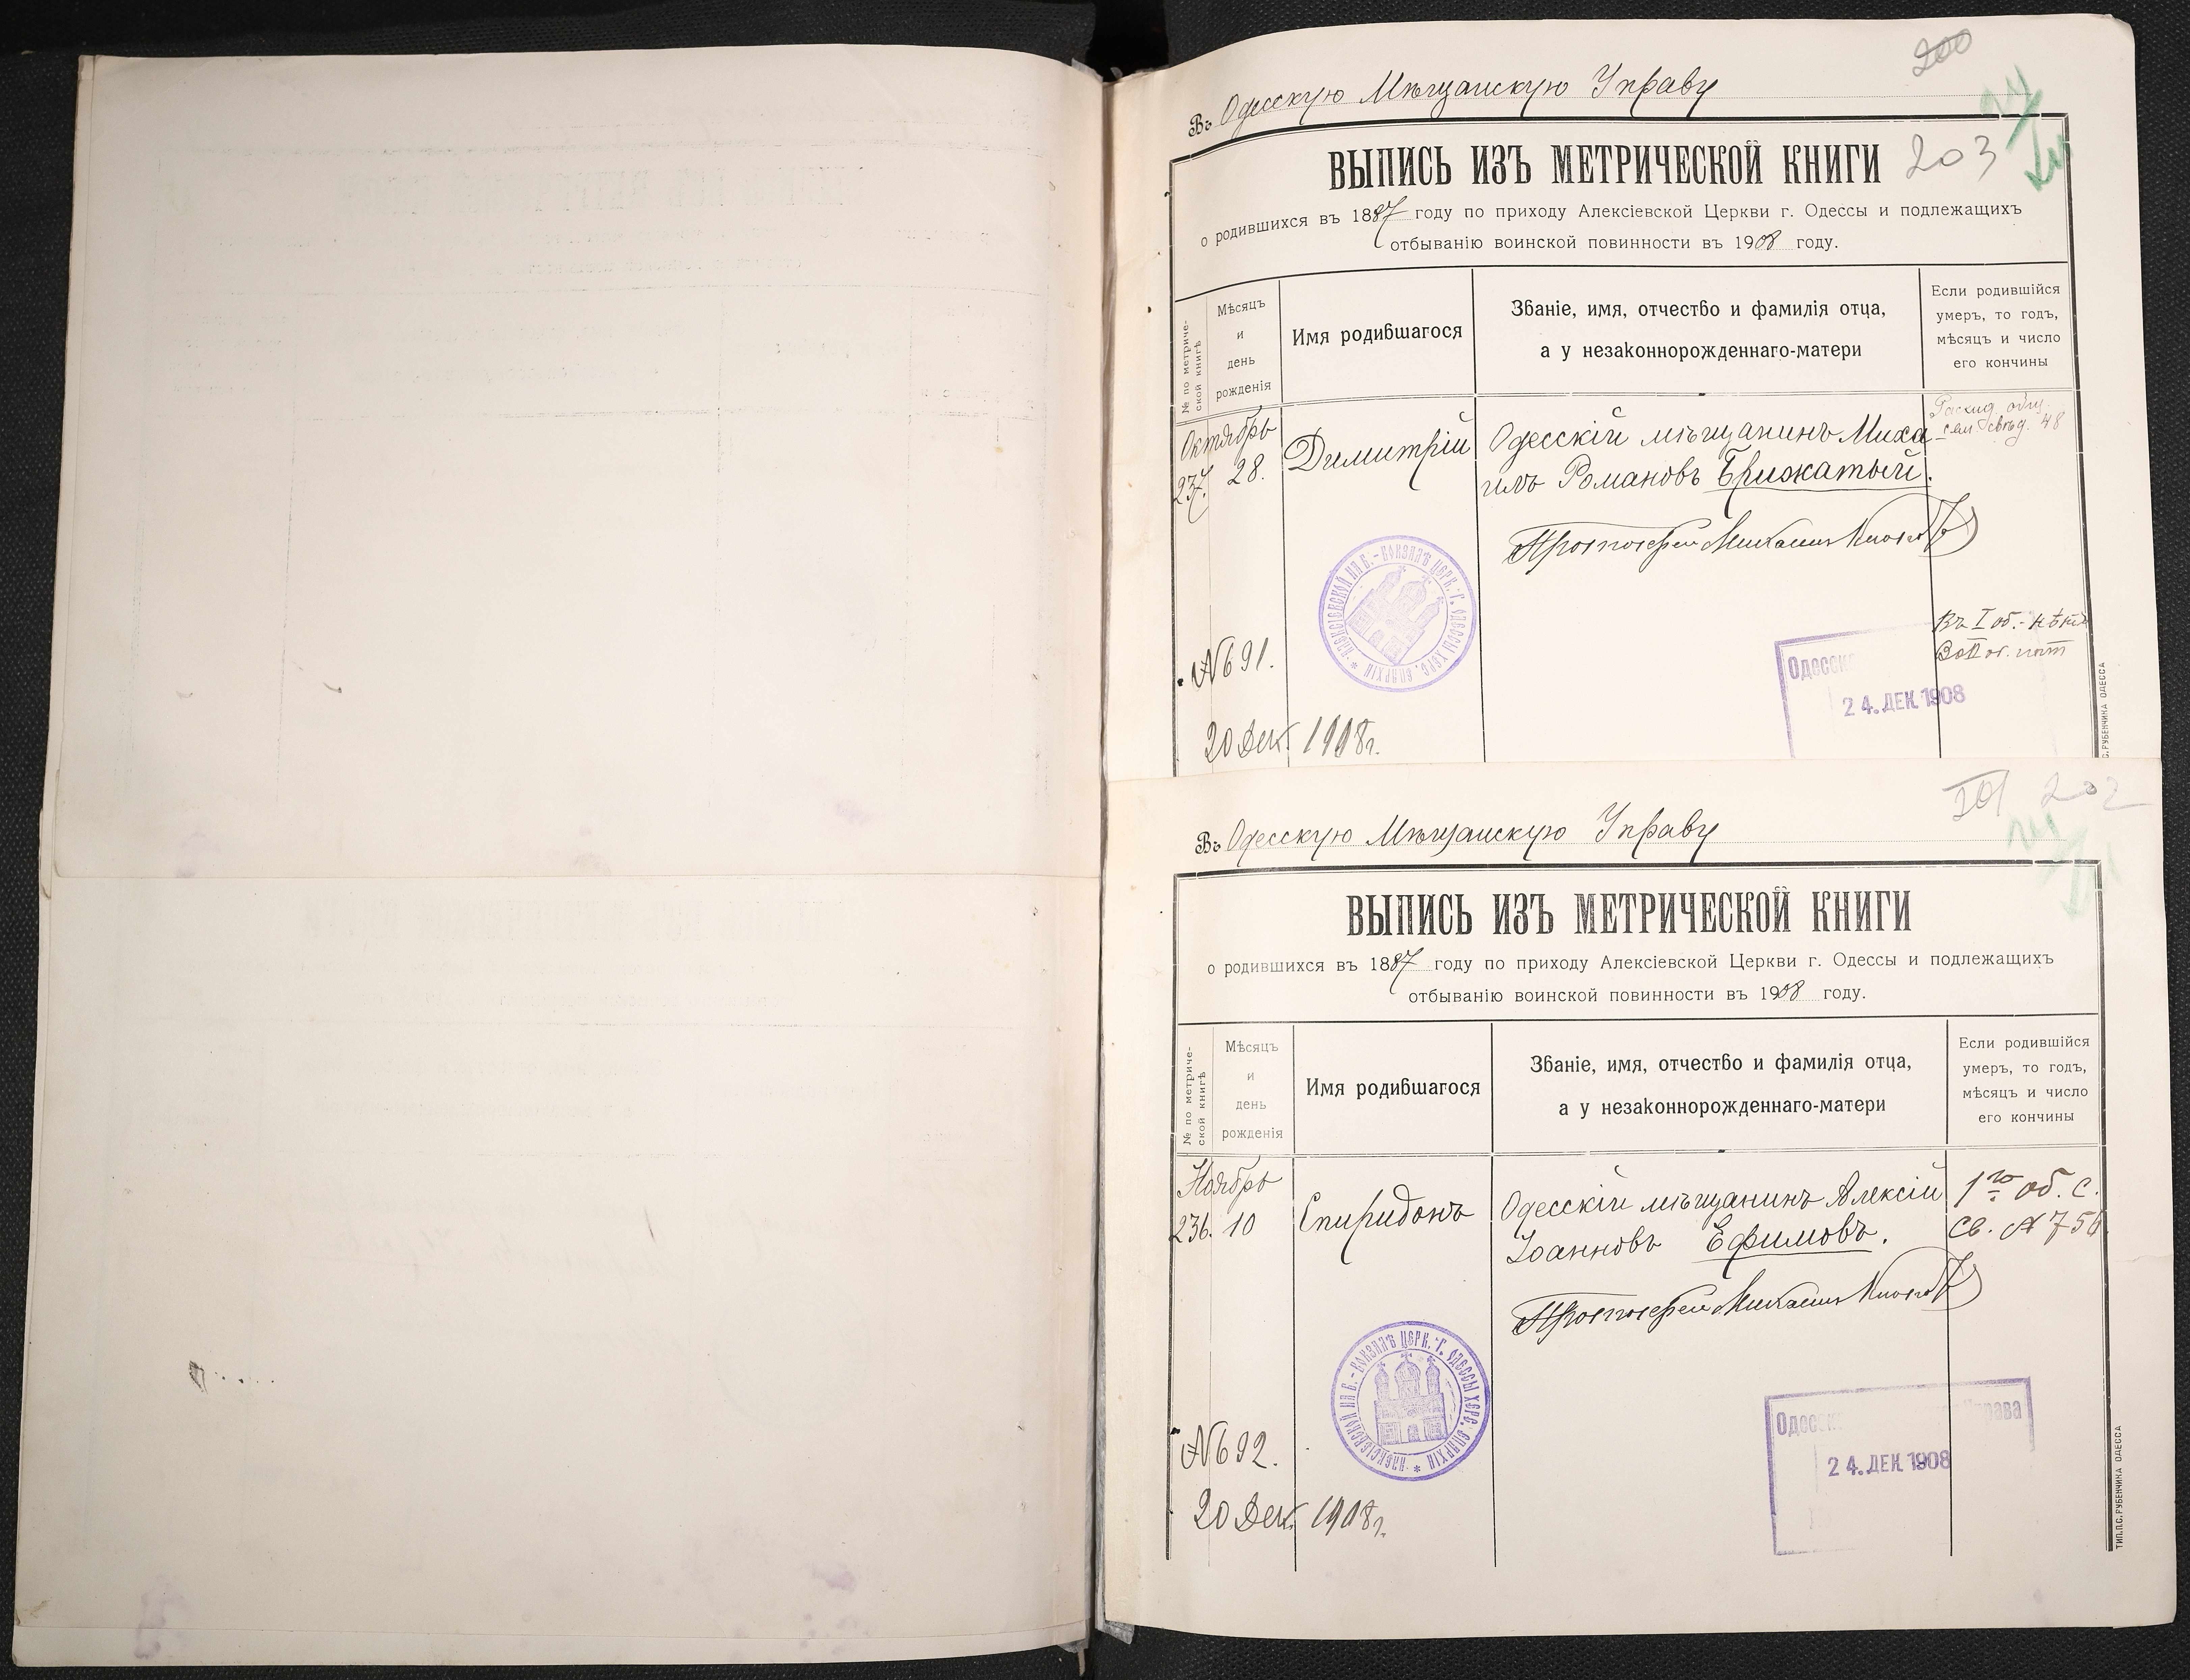 200
Въ Одесскую Мѣщанскую Управу
ВЫПИСЬ ИЗЪ МЕТРИЧЕСКОЙ КНИГИ
203
о родившихся въ 1887 году по приходу Алексіевской Церкви г. Одессы и подлежащихъ
отбыванію воинской повинности въ 1908 году.
№ по метриче-
ской книгѣ
Мѣсяцъ
и
день
рожденія
Имя родившагося
Званіе, имя, отчество и фамилія отца,
а у незаконнорожденнаго-матери
Если родившійся
умеръ, то годъ,
мѣсяцъ и число
его кончины
Октябрь
237. 28.
Димитрій
Одесскій мѣщанинъ Миха
илъ Романовъ Брижатый.
48
Протоіерей Михаилъ
АЛЕКСІЕВСКОЙ НА Б.-ВОКЗАЛѢ ЦЕРК. Г. ОДЕССЫ ХЕРС. ЕПАРХІИ *
Въ I об.
№ 691.
20 Дек. 1908 г.
24. ДЕК. 1908
С. РУБЕНЧИКА ОДЕССА
201 202
Въ Одесскую Мѣщанскую Управу
ВЫПИСЬ ИЗЪ МЕТРИЧЕСКОЙ КНИГИ
о родившихся въ 1887 году по приходу Алексіевской Церкви г. Одессы и подлежащихъ
отбыванію воинской повинности въ 1908 году.
№ по метриче-
ской книгѣ
Мѣсяцъ
и
день
рожденія
Имя родившагося
Званіе, имя, отчество и фамилія отца,
а у незаконнорожденнаго-матери
Если родившійся
умеръ, то годъ,
мѣсяцъ и число
его кончины
Ноябрь
236. 10
Спиридонъ
Одесскій мѣщанинъ Алексій
Іоанновъ Ефимовъ.
1го об. с.
св. № 756
Протоіерей Михаилъ
АЛЕКСІЕВСКОЙ НА Б.-ВОКЗАЛѢ ЦЕРК. Г. ОДЕССЫ ХЕРС. ЕПАРХІИ *
№ 692.
20 Дек. 1908 г.
24. ДЕК. 1908
ТИП. П. С. РУБЕНЧИКА ОДЕССА